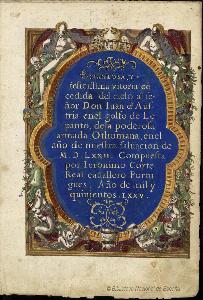 ESPANTOSA, Y
felicissima vitoria cō
cedida del cielo al se
ñor Don Iuan d'Auſ
tria en el golfo de Le
panto, de la poderosa
armada Othomana, en el
año de nueſtra ſaluacion de
M. D. LXXII. Compueſta
por Ieronimo Corte
Real cauallero Portu
gues. Año de mil y
quinientos. LXXV.
© Biblioteca Nacional de España